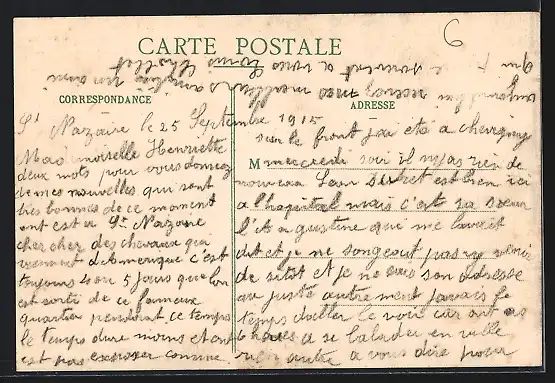 CARTE POSTALE
CORRESPONDANCE
ADRESSE
6
St Nazaire le 25 Septembre 1915
Mademoiselle Henriette
deux mots pour vous donner
de mes nouvelles qui sont
très bonnes de ce moment
ont est a St Nazaire
chercher des chevaux qui
viennent d'Amerique c'est
toujours 4 ou 5 jours que l'on
est sortie de ce fameux
quartier pendant ce temps
le temps dure moins et ont
est pas exposer comme
sur le front j'ai etè a chevigny
M mercredi soir il n'y as rien de
nouveau Leon est bien ici
a l'hopital mais c'est sa sœur
a gustine que me l'avait
dit et je ne songeait pas y venir
de sitot et je ne sais son adresse
au juste autrement j'avais le
temps d'aller le voir car ont as
a se balader en ville
rien autre a vous dire pour